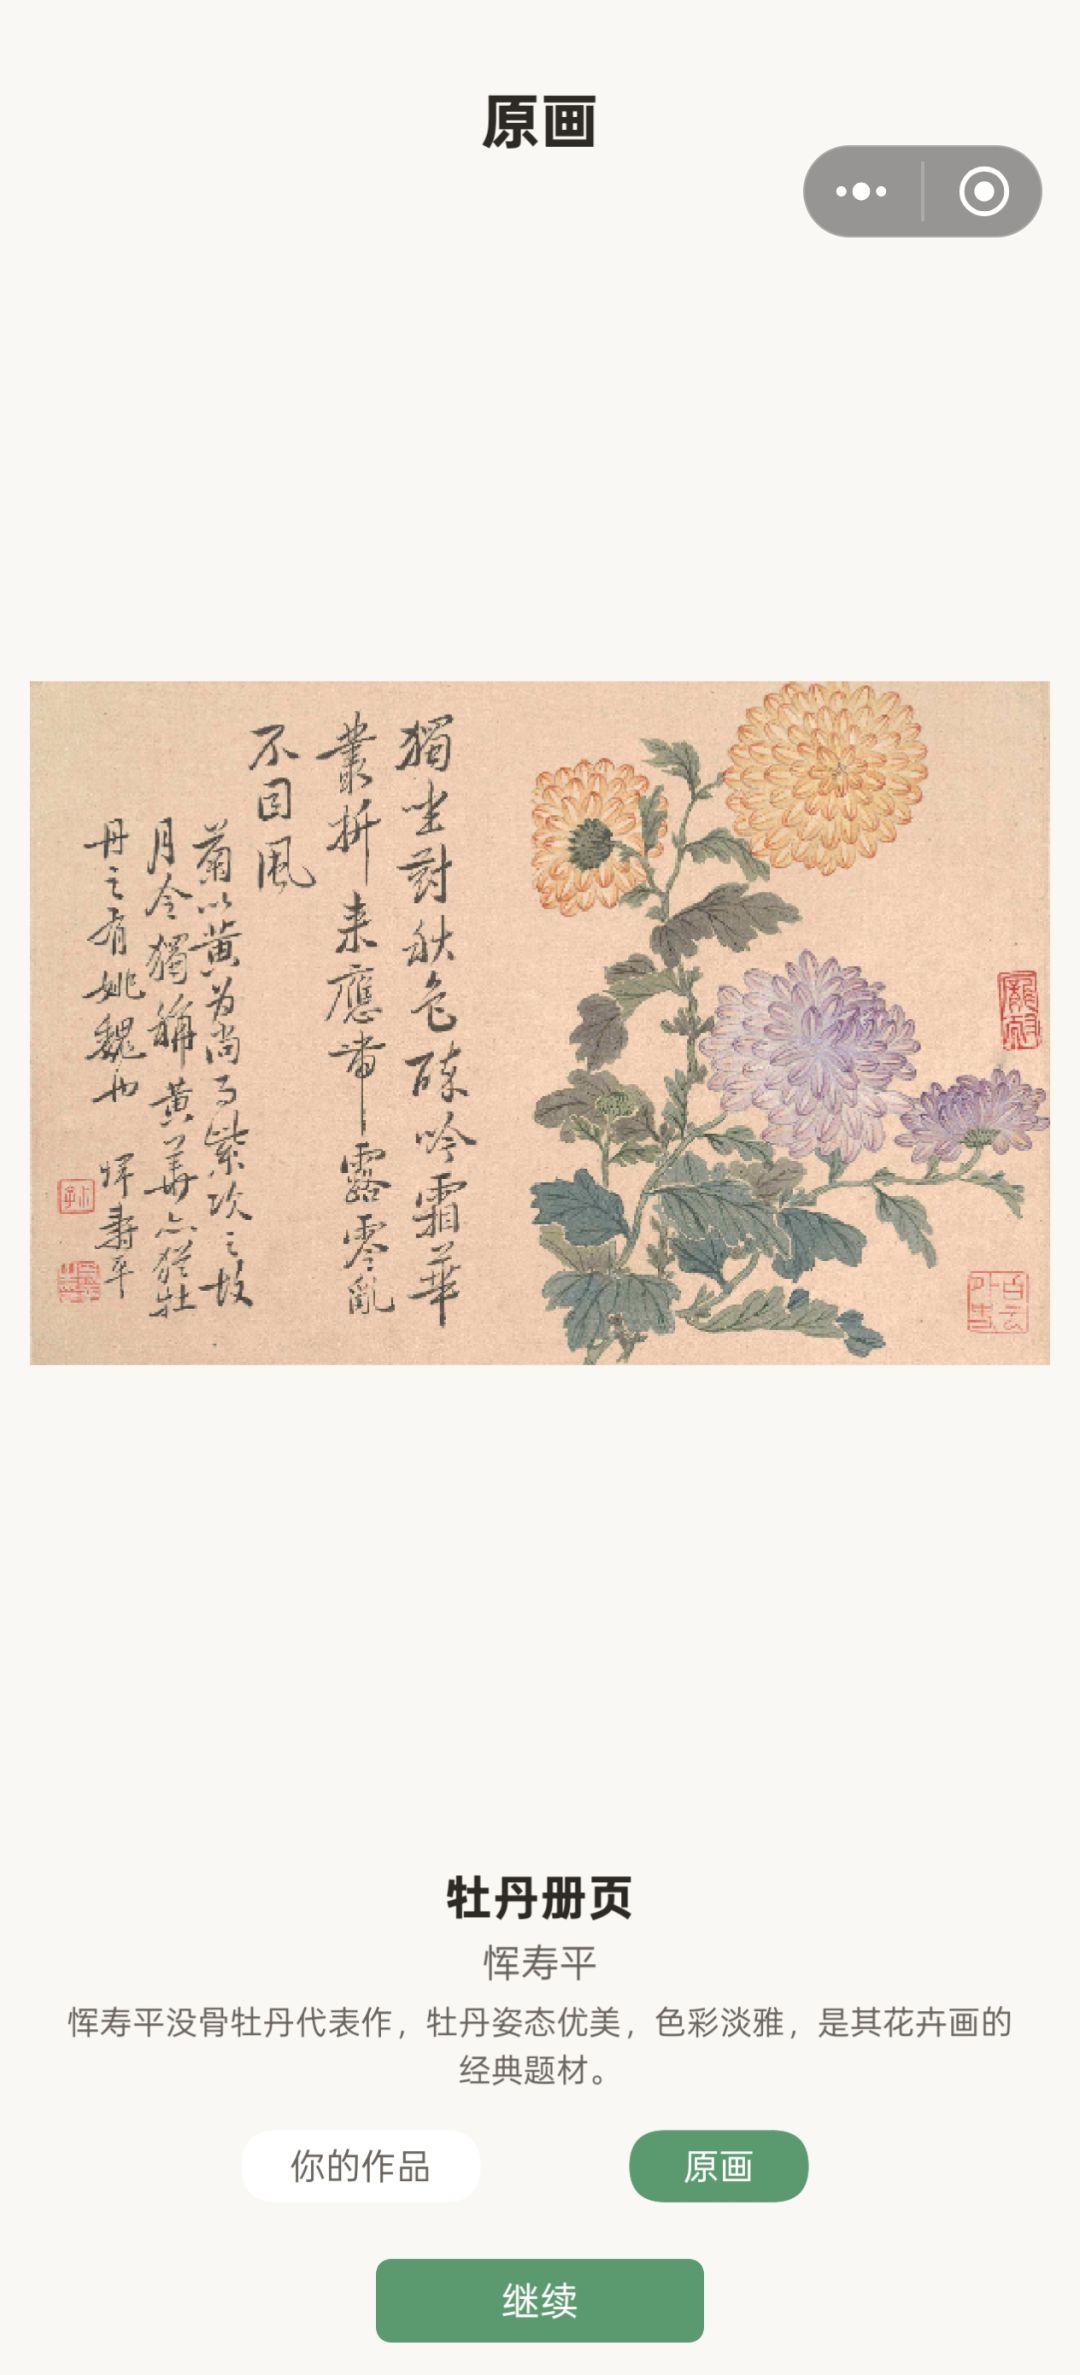 原画
獨坐對秋色酥吟霜華
叢拆来應带露零亂
不因風
菊以黄为尚而紫次之故
月令獨稱黄華亦猶牡
丹之有姚魏也 惲壽平
白云外史
牡丹册页
恽寿平
恽寿平没骨牡丹代表作，牡丹姿态优美，色彩淡雅，是其花卉画的
经典题材。
你的作品
原画
继续